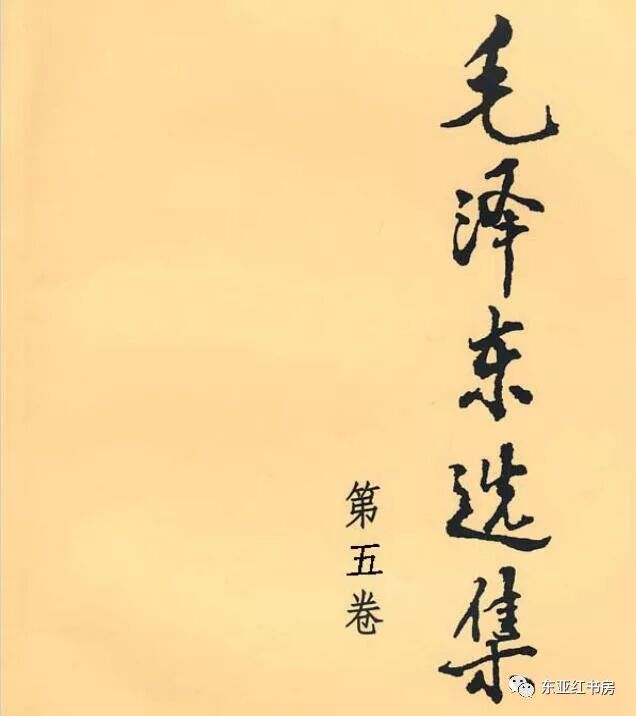 毛泽东选集
第五卷
东亚红书房